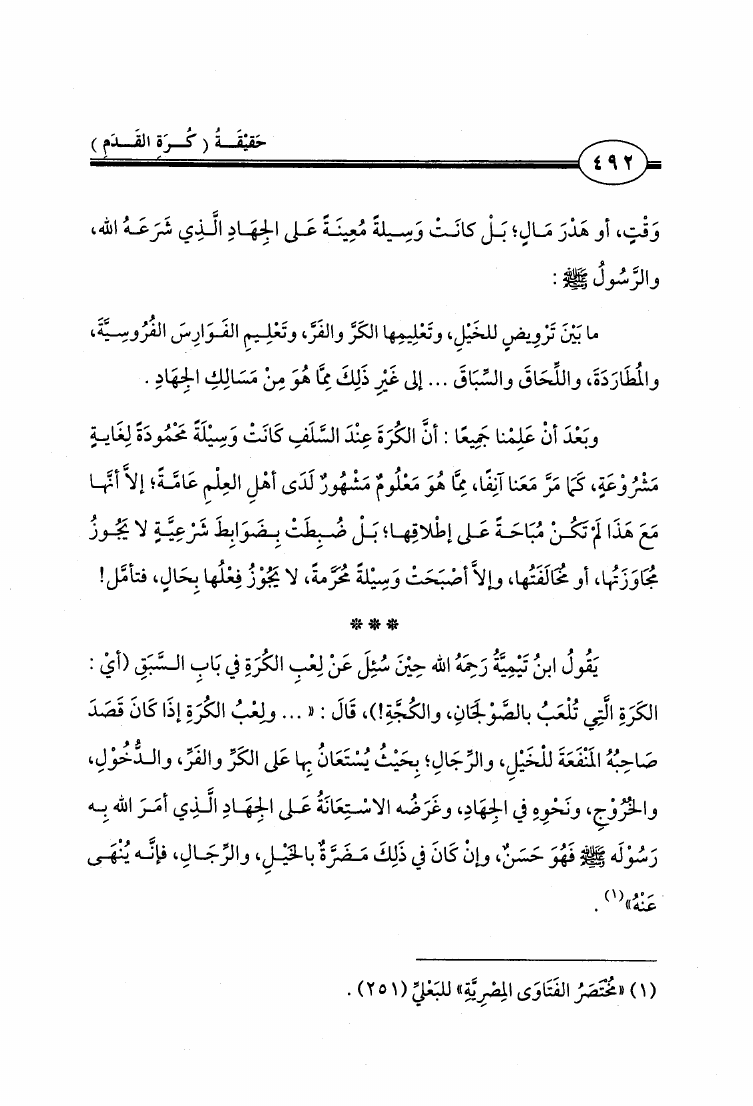 حَقِيْقَـةُ ( كُـرَةِ القَـدَمِ )
٤٩٢
وَقْتٍ، أو هَدْرَ مَـالٍ؛ بَـلْ كانَـتْ وَسِـيلةً مُعِينَـةً عَـلى الجِهَادِ الَّـذِي شَرَعَـهُ الله،
والرَّسُولُ ﷺ :
ما بَيْنَ تَرْوِيضٍ للخَيْلِ، وتَعْلِيمِها الكَرَّ والفَرَّ، وتَعْلِـيمِ الفَـوَارِسَ الفُرُوسِـيَّةَ،
والمُطَارَدَةَ، واللِّحَاقَ والسِّبَاقَ ... إلى غَيْرِ ذَلِكَ مِمَّا هُوَ مِنْ مَسَالِكِ الجِهَادِ .
وبَعْدَ أنْ عَلِمْنا جَمِيعًا : أنَّ الكُرَةَ عِنْدَ السَّلَفِ كَانَتْ وَسِيْلَةً مَحْمُودَةً لِغَايـةٍ
مَشْرُوْعَةٍ، كَمَا مَرَّ مَعَنا آنِفًا، مِمَّا هُوَ مَعْلُومٌ مَشْهُورٌ لَدَى أهْلِ العِلْمِ عَامَّـةً؛ إلاَّ أنَّهـا
مَعَ هَذَا لَمْ تَكُـنْ مُبَاحَـةً عَـلى إطْلاقِهـا؛ بَـلْ ضُـبِطَتْ بِـضَوَابِطَ شَرْعِيَّـةٍ لا يَجُـوزُ
مُجَاوَزَتُها، أو مُخَالَفَتُها، وإلاَّ أصْبَحَتْ وَسِيْلةً مُحَرَّمةً، لا يَجُوْزُ فِعْلُها بِحَالٍ، فتَأمَّل!
* * *
يَقُولُ ابنُ تَيْمِيَّةُ رَحِمَهُ الله حِيْنَ سُئِلَ عَنْ لِعْبِ الكُرَةِ في بَابِ السَّبَقِ (أيْ :
الكُرَةِ الَّتِي تُلْعَبُ بالصَّوْلَجَانِ، والكُجَّةِ!)، قَالَ : « ... ولِعْبُ الكُرَةِ إذَا كَانَ قَصَدَ
صَاحِبُهُ المَنْفَعَةَ للخَيْلِ، والرِّجَالِ؛ بِحَيْثُ يُسْتَعَانُ بِها عَلى الكَرِّ والفَرِّ، والـدُّخُوْلِ،
والخُرُوْجِ، ونَحْوِهِ في الجِهَادِ، وغَرَضُه الاسْـتِعَانَةُ عَـلى الجِهَـادِ الَّـذِي أمَـرَ الله بِـه
رَسُوْلَه ﷺ فَهُوَ حَسَنٌ، وإنْ كَانَ في ذَلِكَ مَضَرَّةٌ بالخَيْـلِ، والرِّجَـالِ، فإنَّـه يُنْهَـى
عَنْهُ»(١) .
(١) «مُخْتَصَرُ الفَتَاوَى المِصْرِيَّةِ» للبَعْليِّ (٢٥١) .